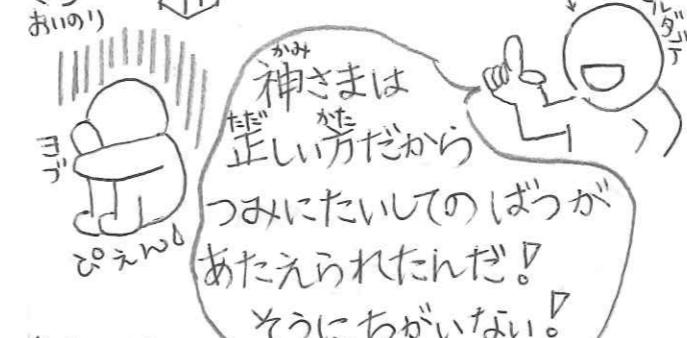 おいのり
ヨブ
ぴえん
神さまは
かみ
正しい方だから
ただ かた
つみにたいしてのばつが
あたえられたんだ!
そうにちがいない!
ルダデ